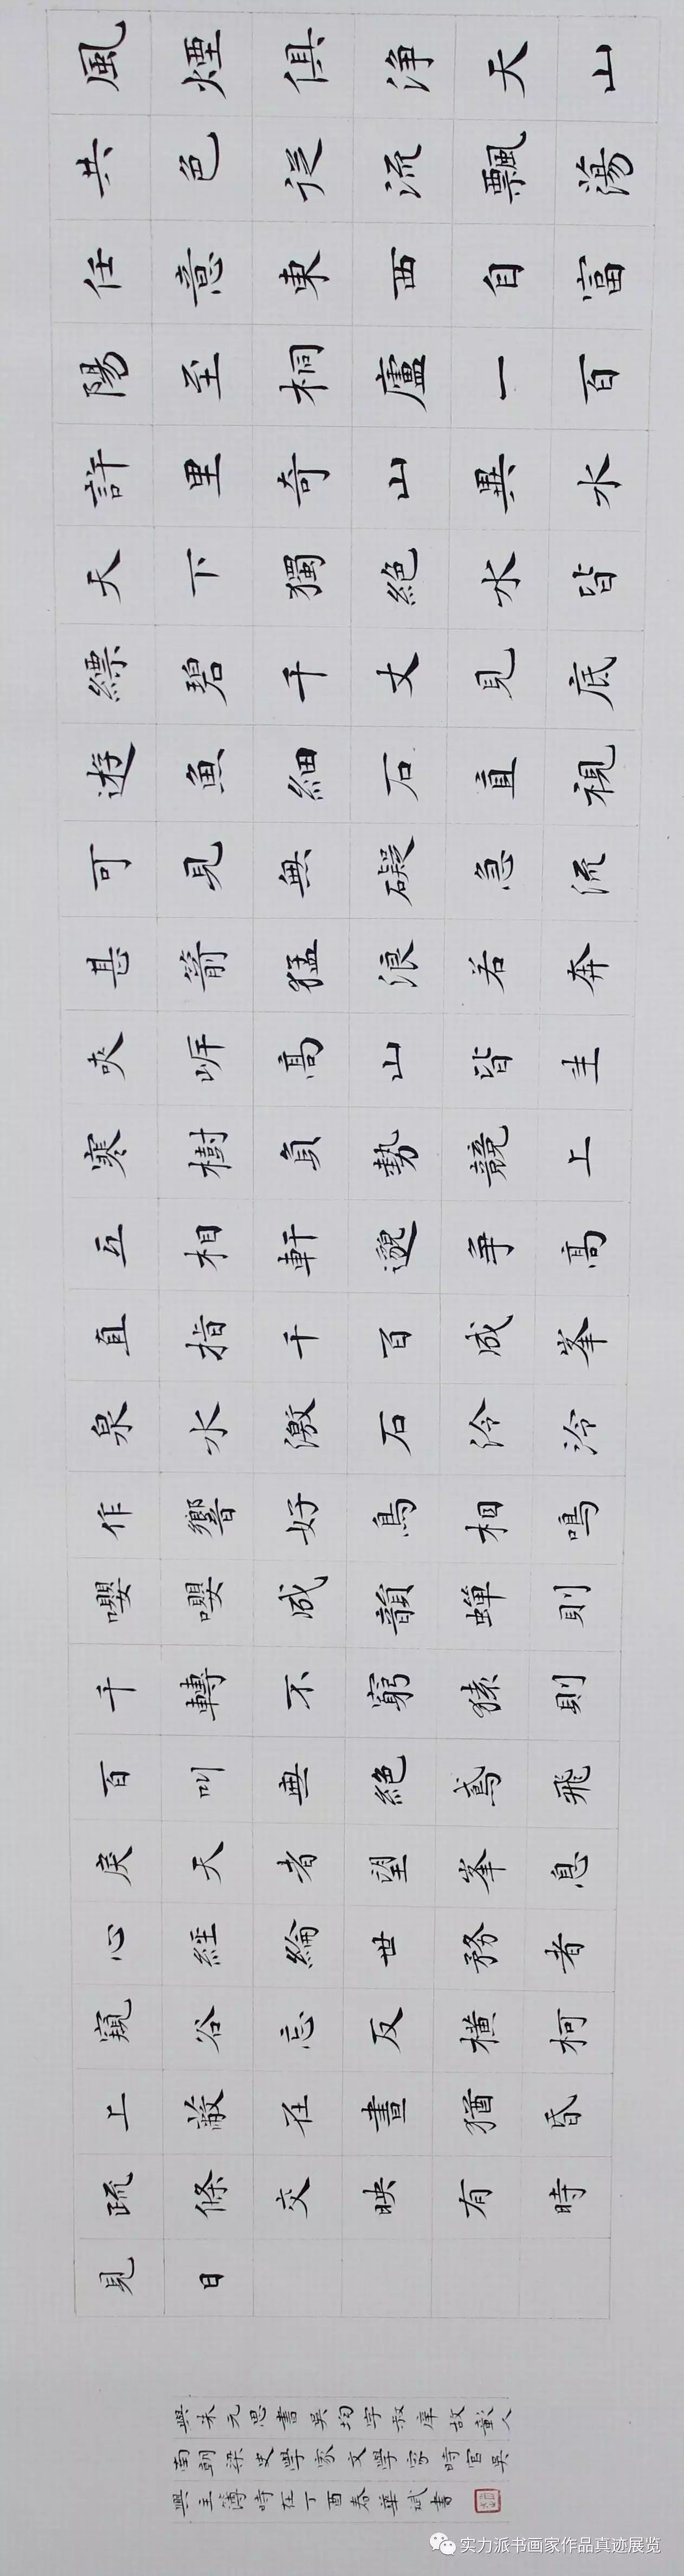 風煙俱淨天山
共色從流飄蕩
任意東西自富
陽至桐廬一百
許里奇山異水
天下獨絕水皆
縹碧千丈見底
遊魚細石直視
可見無礙急流
甚箭猛浪若奔
夾崖高山皆生
寒樹負勢競上
互相軒邈爭高
直指千百成峯
泉水激石泠泠
作響好鳥相鳴
嚶嚶成韻蟬則
千轉不窮猿則
百叫無絕鳶飛
戾天者望峯息
心經綸世務者
窺谷忘反橫柯
上蔽在晝猶昏
疏條交映有時
見日
與朱元思書吳均字叔庠故彰人
南朝梁史學家文學家時官吳
興主簿時在丁酉春華斌書
实力派书画家作品真迹展览